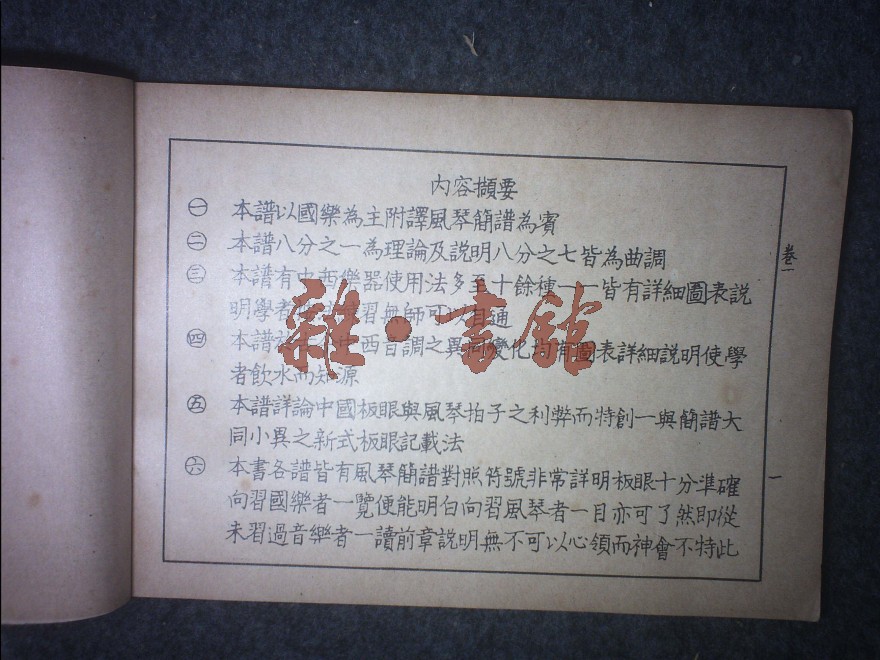 內容擷要
㊀ 本譜以國樂為主附譯風琴簡譜為賓
㊁ 本譜八分之一為理論及説明八分之七皆為曲調
㊂ 本譜有中西樂器使用法多至十餘種一一皆有詳細圖表説
明學者 習無師可以自通
㊃ 本譜 西音調之異同變化均有圖表詳細説明使學
者飲水而知源
㊄ 本譜詳論中國板眼與風琴拍子之利弊而特創一與簡譜大
同小異之新式板眼記載法
㊅ 本書各譜皆有風琴簡譜對照符號非常詳明板眼十分準確
向習國樂者一覽便能明白向習風琴者一目亦可了然即從
未習過音樂者一讀前章説明無不可以心領而神會不特此
卷一
一
雜·書館